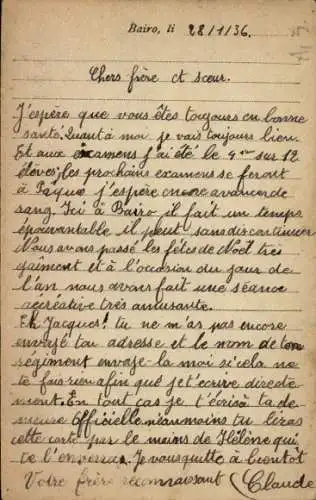 Bairo, li 28/1/36.
Chers frère et sœur.
J'espère que vous êtes toujours en bonne
santé. Quant à moi je vais toujours bien.
Et aux examens j'ai été le 4me sur 12
élèves, les prochains examens se feront
à Pâque j'espère encore avancer de
rang. Ici à Bairo il fait un temps
épouvantable il pleut sans discontinuer
Nous avons passé les fêtes de Noël très
gaiment et à l'occasion du jour de
l'an nous avons fait une séance
récréative très amusante.
Eh Jacques! tu ne m'as pas encore
envoyé ton adresse et le nom de ton
régiment envoye-la moi si cela ne
te fais rien afin que je t'écrive directe
ment. En tout cas je t'écris à ta de
meure officielle néanmoins tu liras
cette carte par le moins de Hélène qui
te l'enverra. Je vous quitte à bientôt
Votre frère reconnaissant Claude